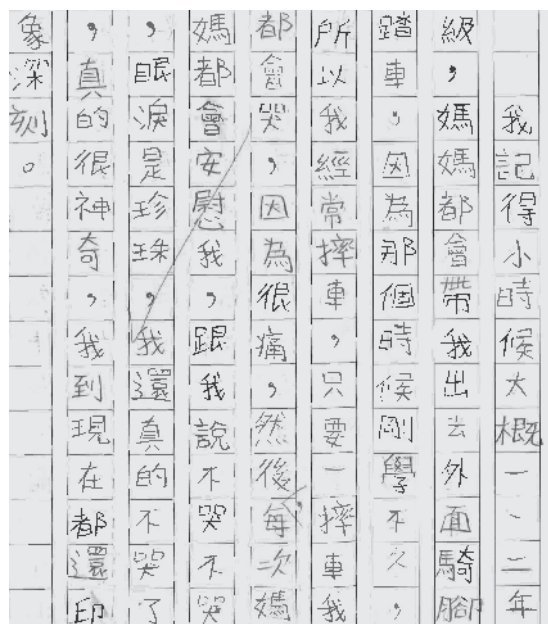 我記得小時候大概一、二年
級，媽媽都會帶我出去外面騎腳
踏車，因為那個時候剛學不久，
所以我經常摔車，只要一摔車我
都會哭，因為很痛，然後，每次媽
媽都會安慰我，跟我說不哭不哭
，眼淚是珍珠，我還真的不哭了
，真的很神奇，我到現在都還印
象深刻。